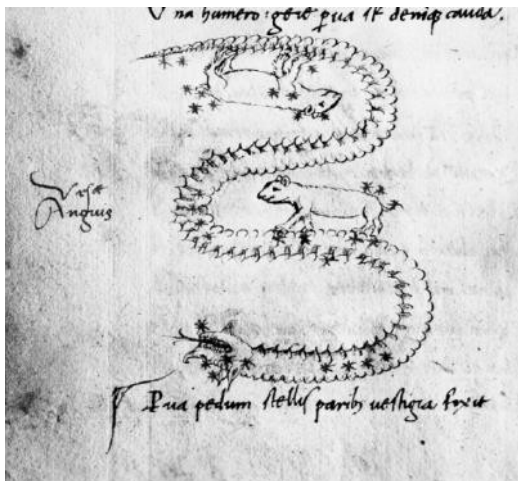 Una humero: gẽe p̃ua sẽ deniq̃ cauda.
Vrsæ
Anguis
Prua pedum stellis paribꝫ uestigia fixit